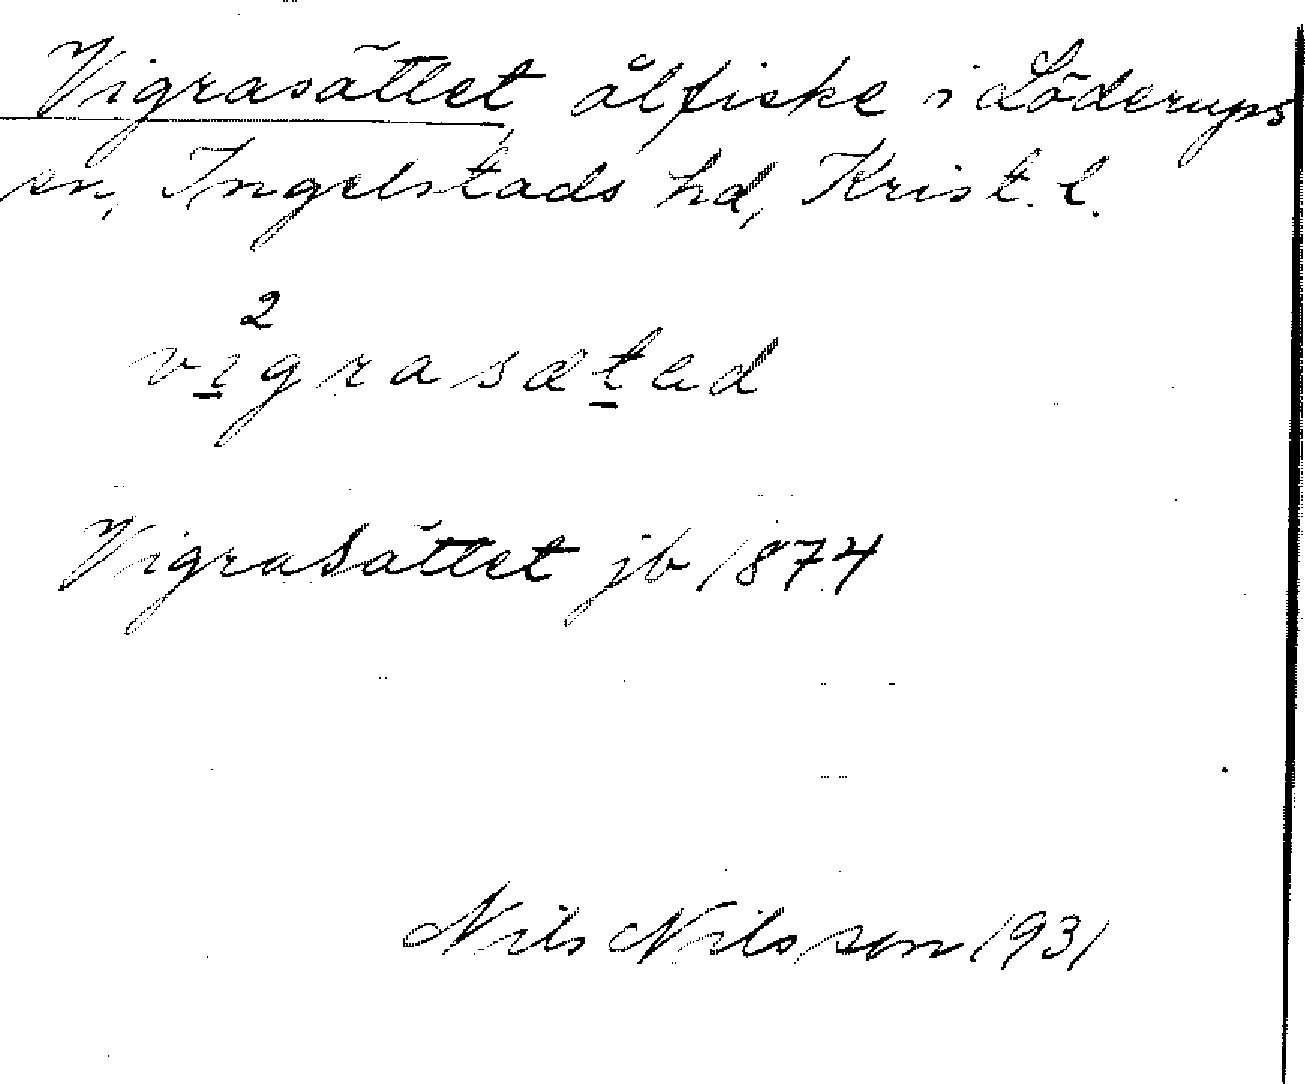 Vigrasättet, ålfiske i Löderups
sn, Ingelstads hd, Krist. l.
2
vigrasætad
Vigrasättet jb 1874
Nils Nilsson 1931